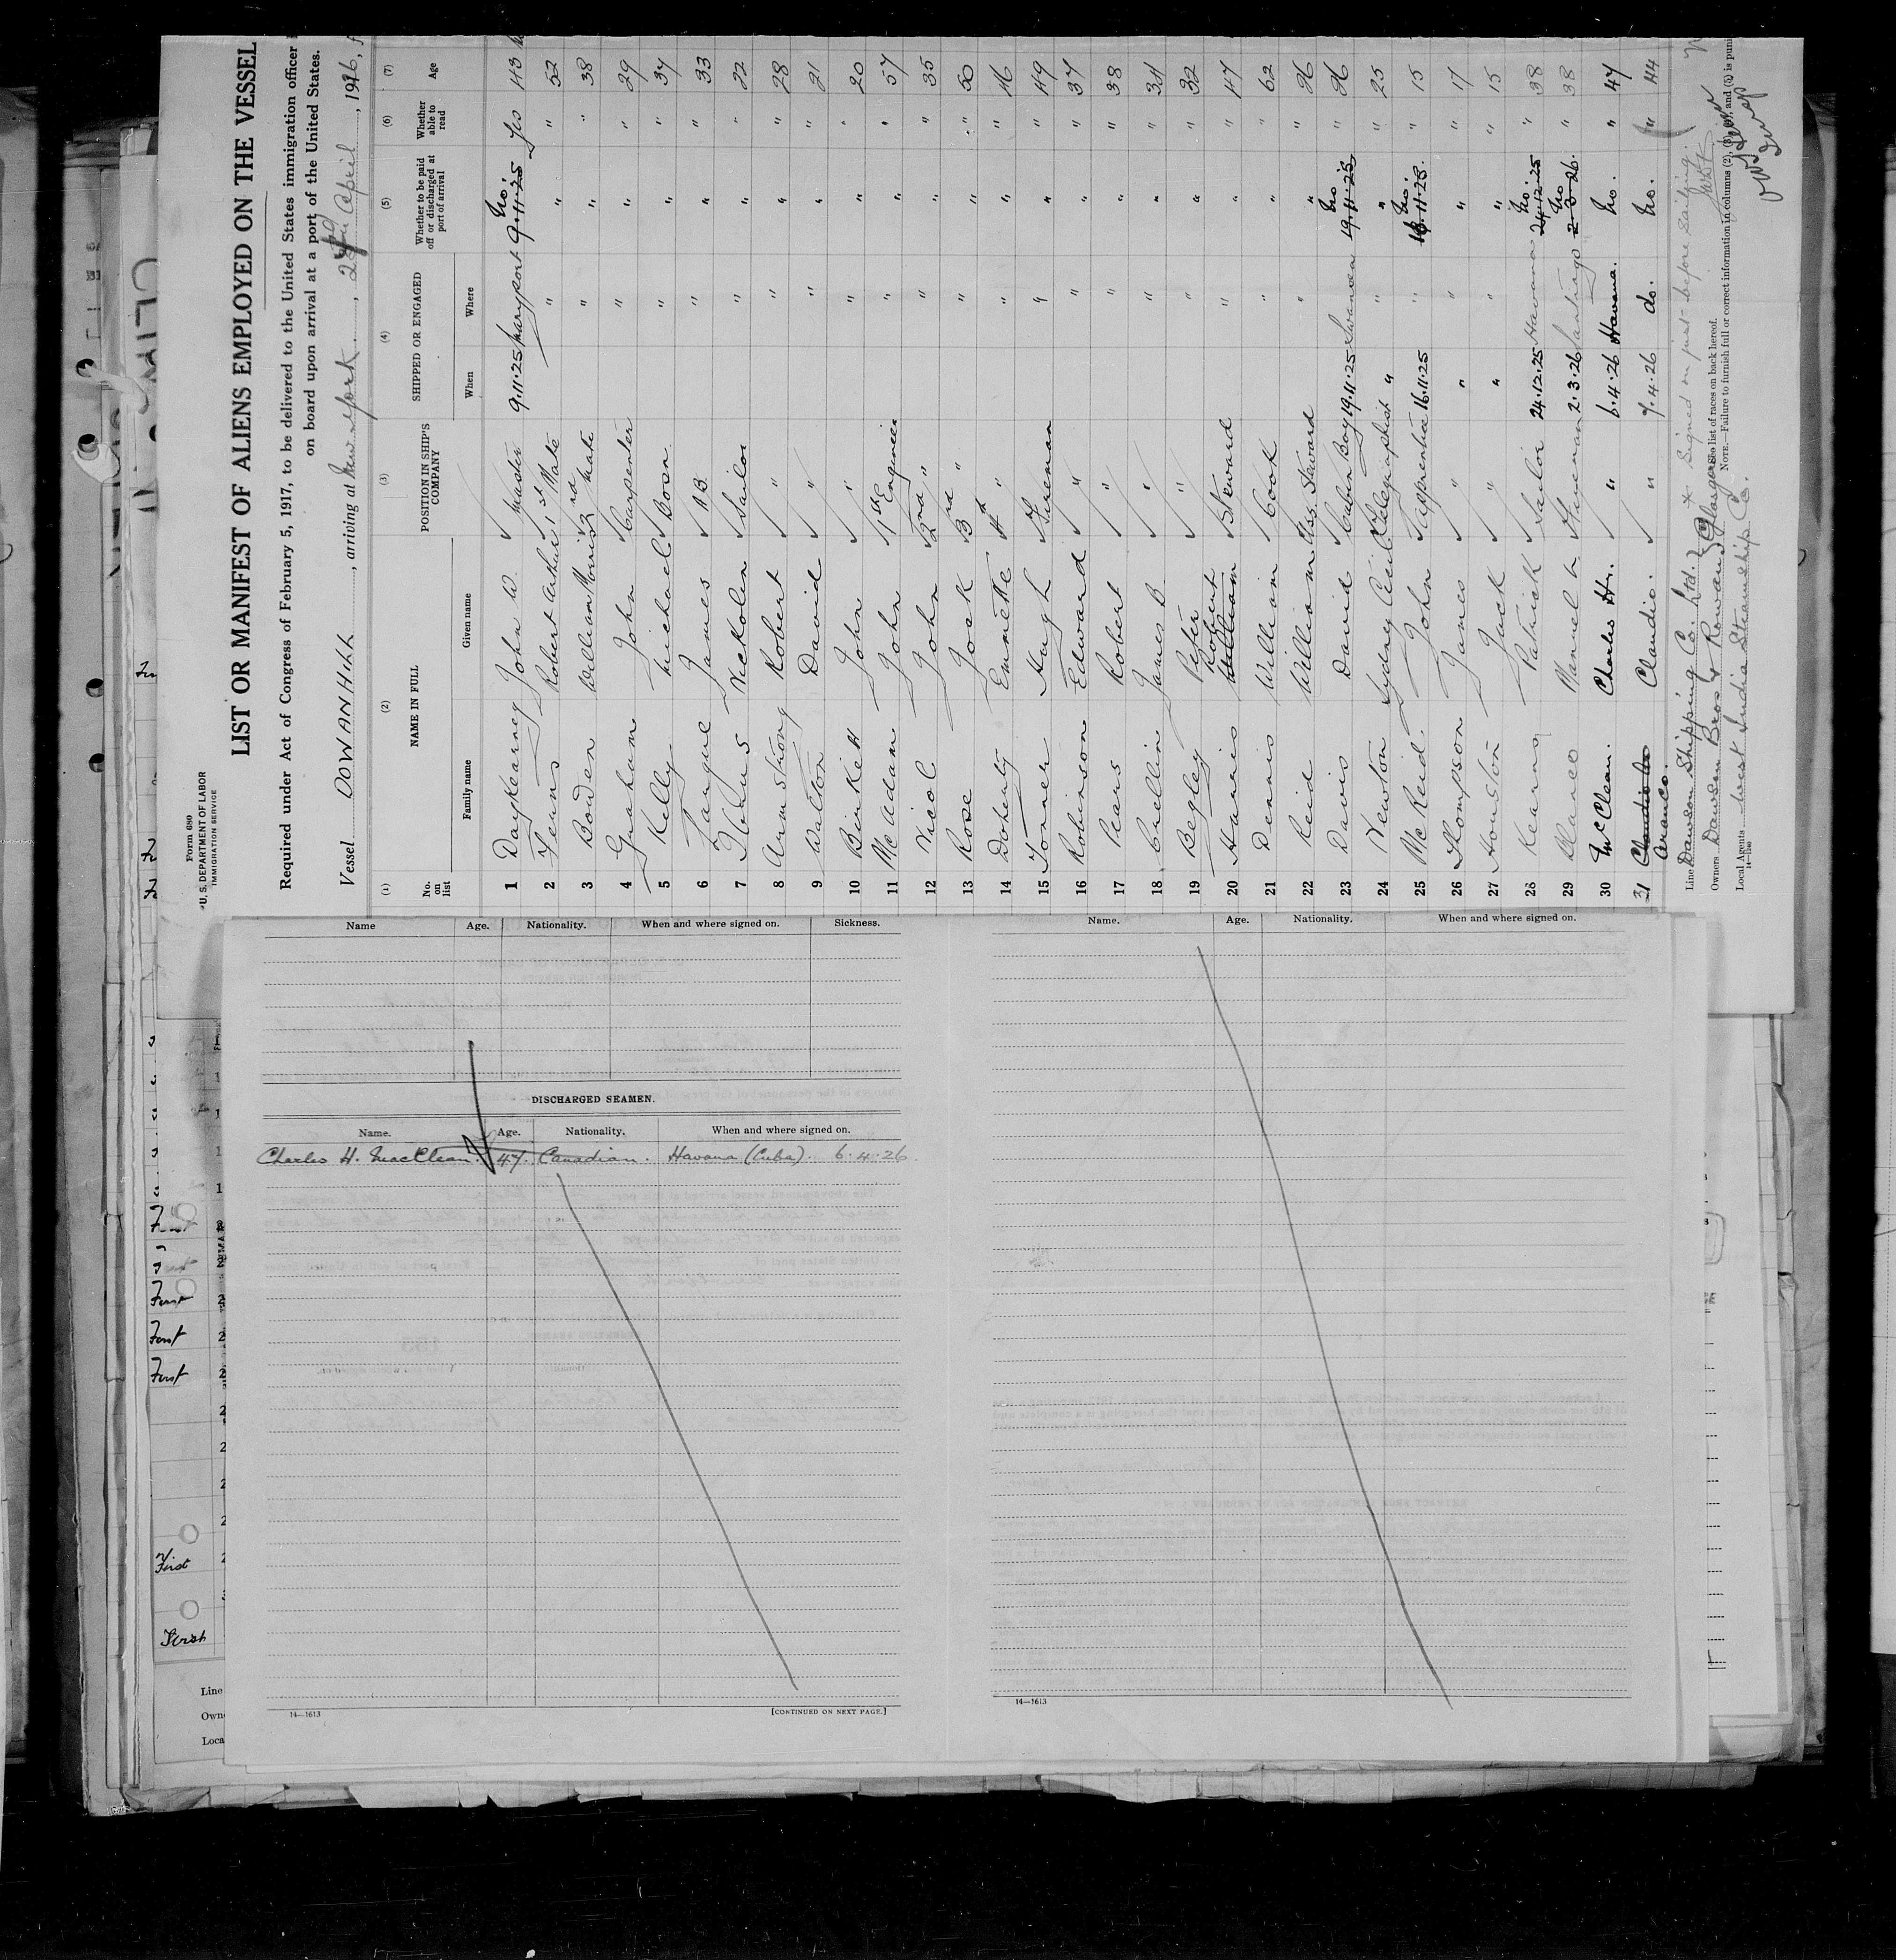 Form 680
U. S. DEPARTMENT OF LABOR
IMMIGRATION SERVICE
LIST OR MANIFEST OF ALIENS EMPLOYED ON THE VESSEL
Required under Act of Congress of February 5, 1917, to be delivered to the United States immigration officer
on board upon arrival at a port of the United States.
Vessel DOWANHILL, arriving at New York, April, 1926,
(1) (2) (3) (4) (5) (6) (7)
No. on list NAME IN FULL POSITION IN SHIP'S COMPANY SHIPPED OR ENGAGED Whether to be paid off or discharged at port of arrival Whether able to read Age
Family name Given name When Where
1 Daykearney John W. Master 9.11.25 Maryport No. 9.11.25 Yes 43
2 Ferns Robert Arthur 1st Mate " " " 52
3 Bowden William Morris 2nd Mate " " " 38
4 Graham John Carpenter " " " 29
5 Kelly Michael Bosn " " " 37
6 Fargue James A.B. " " " 33
7 Nickolen Sailor " " " 22
8 Armstrong Robert " " " " 28
9 Walton David " " " " 21
10 Birkett John " " " " 20
11 McAdam John 1st Engineer " " " 57
12 Nicol John 2nd " " " " 35
13 Rose Jock 3rd " " " " 50
14 Doherty Emmette 4th " " " " 46
15 Tonner Hugh Fireman " " " 49
16 Robinson Edward " " " " 37
17 Pears Robert " " " " 38
18 Crellin James B. " " " " 34
19 Begley Peter " " " " 32
20 Harris William Robert Steward " " " 47
21 Dennis William Cook " " " 62
22 Reid William Ass. Steward " " " 26
23 Davis David Cabin Boy 19.11.25 Swansea No. 19.11.25 " 26
24 Newton Sydney Cecil Telegraphist " " " " 25
25 McReid John Apprentice 16.11.25 " No. 16.11.25 " 15
26 Thompson James " " " " " 17
27 Houston Jack " " " " " 15
28 Kearney Patrick Sailor 24.12.25 Havana No. 24.12.25 " 38
29 Blanco Manuel Fireman 2.3.26 Santiago No 2.3.26. " 38
30 McClean. Charles H. " 6.4.26 Havana. No. " 47
31 Claudio Aranco. Claudio. " 7.4.26 do. No. " 44
Line Dawson Shipping Co. Ltd. * Signed on just before sailing.
Owners Dawson Bros & Rowan Glasgow See list of races on back hereof.
NOTE.—Failure to furnish full or correct information in columns (2), (3), and (5) is puni
Local Agents West India Steamship Co.
Name Age. Nationality. When and where signed on. Sickness.
DISCHARGED SEAMEN.
Name. Age. Nationality. When and where signed on.
Charles H. MacClean. 47. Canadian. Havana (Cuba). 6.4.26
14—1613 [CONTINUED ON NEXT PAGE.]
Name. Age. Nationality. When and where signed on.
14—1613
First
First
First
First
First
Line
Own
Loca